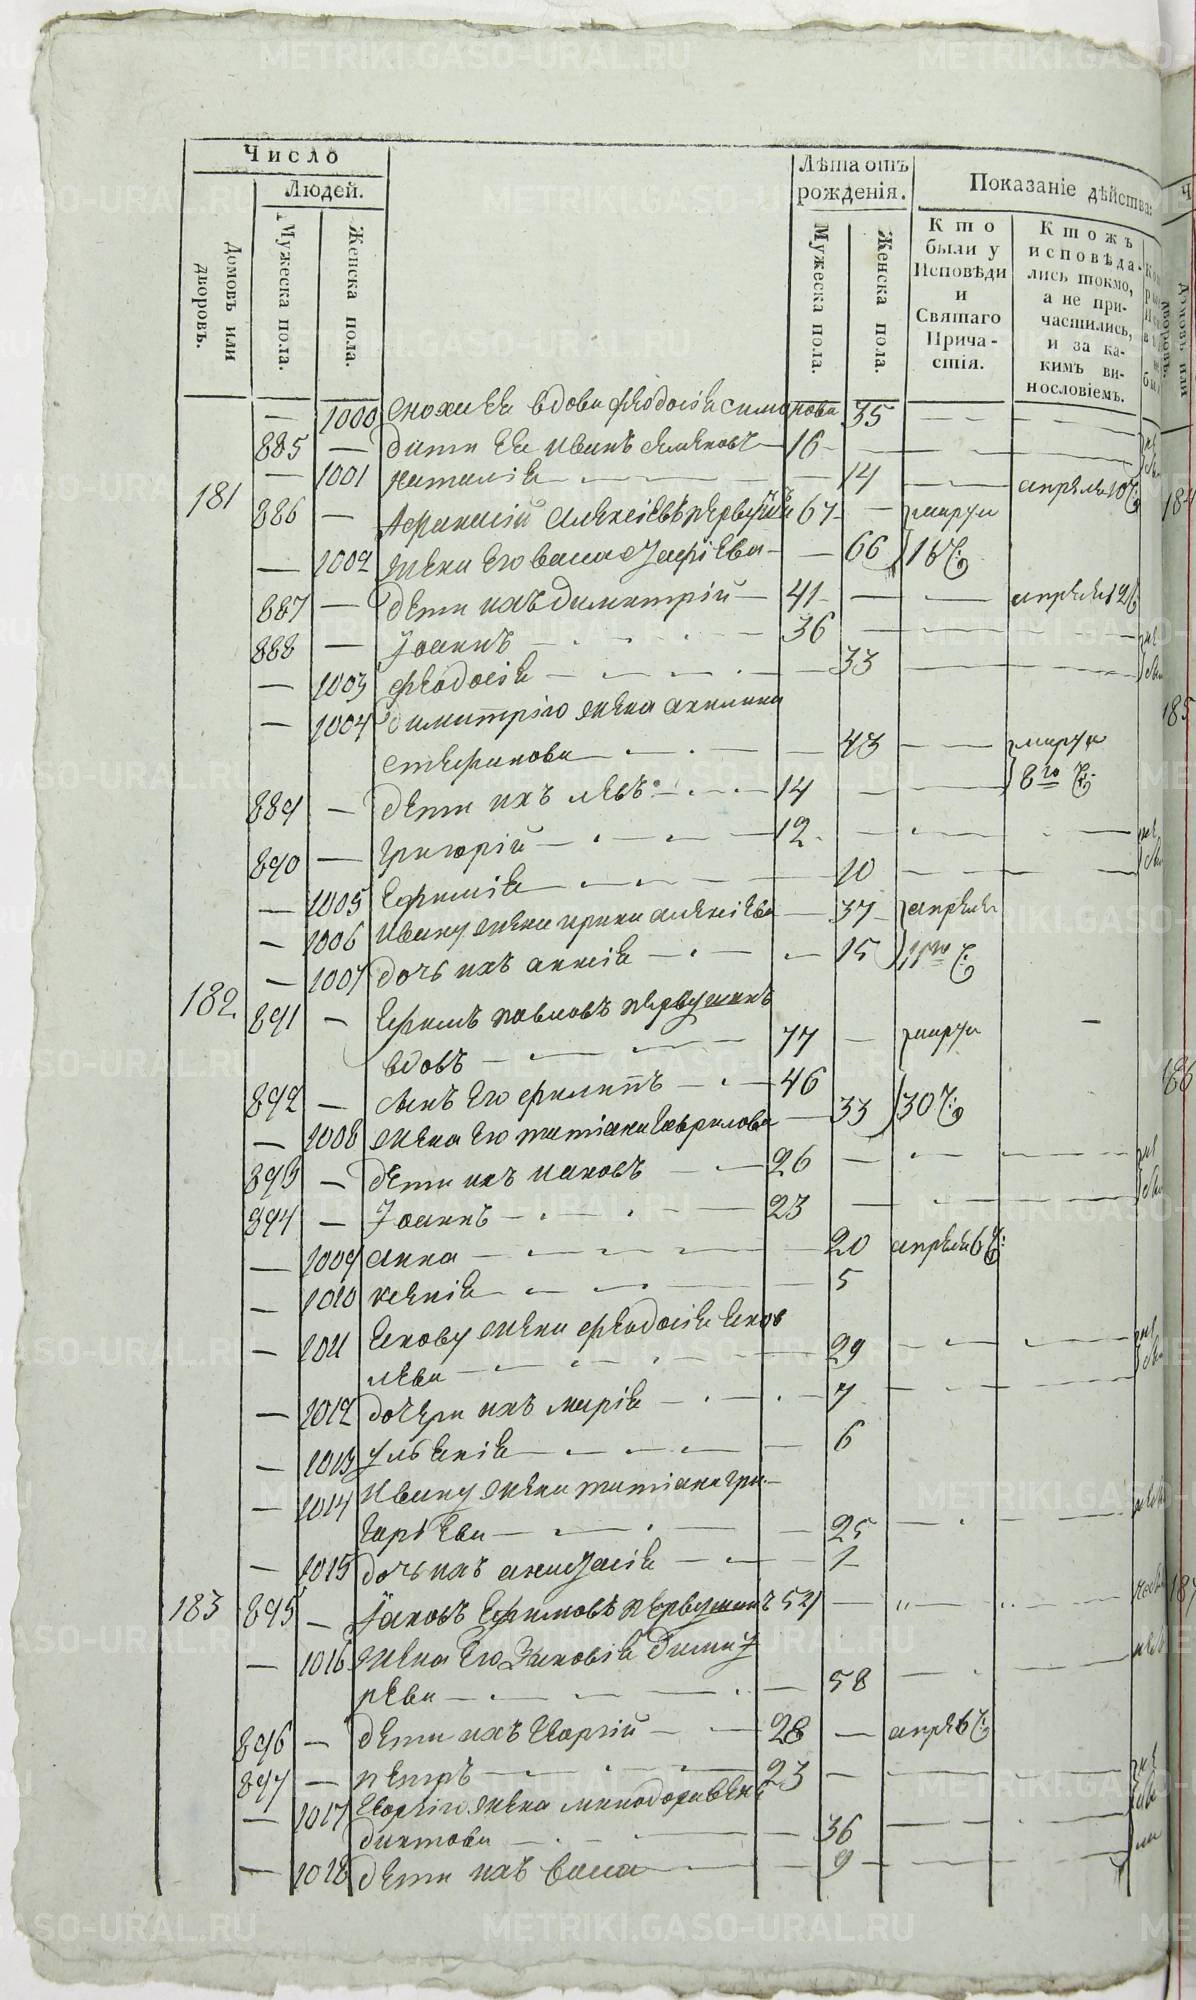 Число
Людей.
Домовъ или дворовъ.
Мужеска пола.
Женска пола.
Лѣта отъ рожденія.
Мужеска пола.
Женска пола.
Показаніе дѣйства:
Кто были у Исповѣди и Святаго Прича-стія.
Ктожъ исповѣда-лись токмо, а не при-частились, и за ка-кимъ ви-нословіемъ.
— 1000 Сноха Ея вдова Феодосія Симонова 35 — —
885 — Дѣти Ея Иванъ 16 — —
— 1001 Наталія — 14 — —
апреля 10 ч:
181 886 — Афанасій Алексіевъ Первушинъ 67 — марта
— 1002 Жена Его Васса — 66 16 ч:
887 — Дѣти ихъ Димитрій — 41 — — апреля 12
888 — Іоаннъ — 36 — —
— 1003 Феодосія — 33 — —
— 1004 Димитрію жена Акилина
Стефанова — 43 — — марта
8го ч:
889 — Дѣти ихъ Левъ — 14 — —
890 — Григорій — 12 — —
— 1005 Ефимія — 10 — —
— 1006 Ивану жена Ирина Алексіева — 37 апреля
— 1007 Дочь ихъ Анисія — 15 11го ч:
182. 891 — Ефимъ Павловъ Первушинъ
вдовъ — 77 — марта
892 — Сынъ Его Филиппъ — 46
— 1008 Жена Его Татіана Гаврилова — 33 30 ч:
893 — Дѣти ихъ Иаковъ — 26 — —
894 — Іоаннъ — 23 — —
— 1009 Анна — 20 апреля 6 ч:
— 1010 Ксенія — 5
— 1011 Иакову жена Феодосія Яков
лева — 29 — —
— 1012 Дочери ихъ Марія — 7 — —
— 1013 Ульянія — 6
— 1014 Ивану жена Татіана Гри-
горіева — 25 — —
— 1015 Дочь ихъ Анастасія — 1
183 895 — Іаковъ Ефимовъ Первушинъ 52 — „ —
— 1016 Жена Его Зиновія
рева — 58 — —
896 — Дѣти ихъ Георгій — 28 — апреля 6 ч:
897 — Петръ — 23 — —
— 1017 Георгію жена Минодора Вене
диктова — 36 — —
— 1018 Дѣти ихъ Васса — 9 — —
184
185
186
187
METRIKI.GASO-URAL.RU